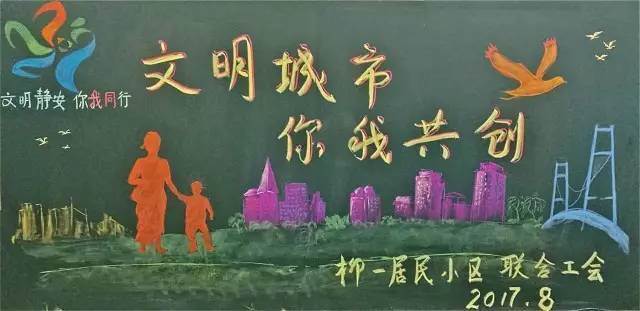 文明城市
你我共创
文明静安 你我同行
柳一居民小区 联合工会
2017.8